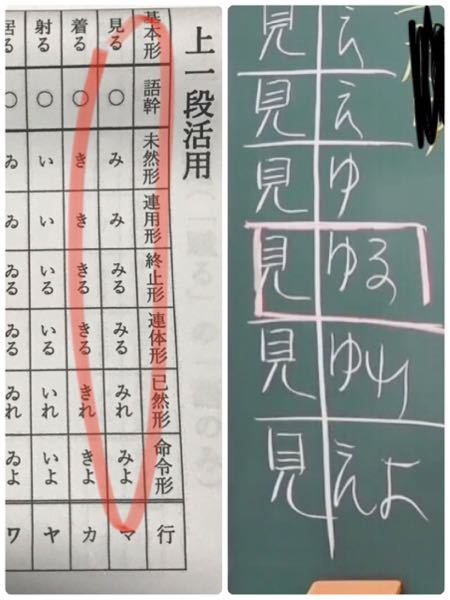 上一段活用
基本形 語幹 未然形 連用形 終止形 連体形 已然形 命令形 行
見る ○ み み みる みる みれ みよ マ
着る ○ き き きる きる きれ きよ カ
射る ○ い い いる いる いれ いよ ヤ
居る ○ ゐ ゐ ゐる ゐる ゐれ ゐよ ワ
見 え
見 え
見 ゆ
見 ゆる
見 ゆれ
見 えよ